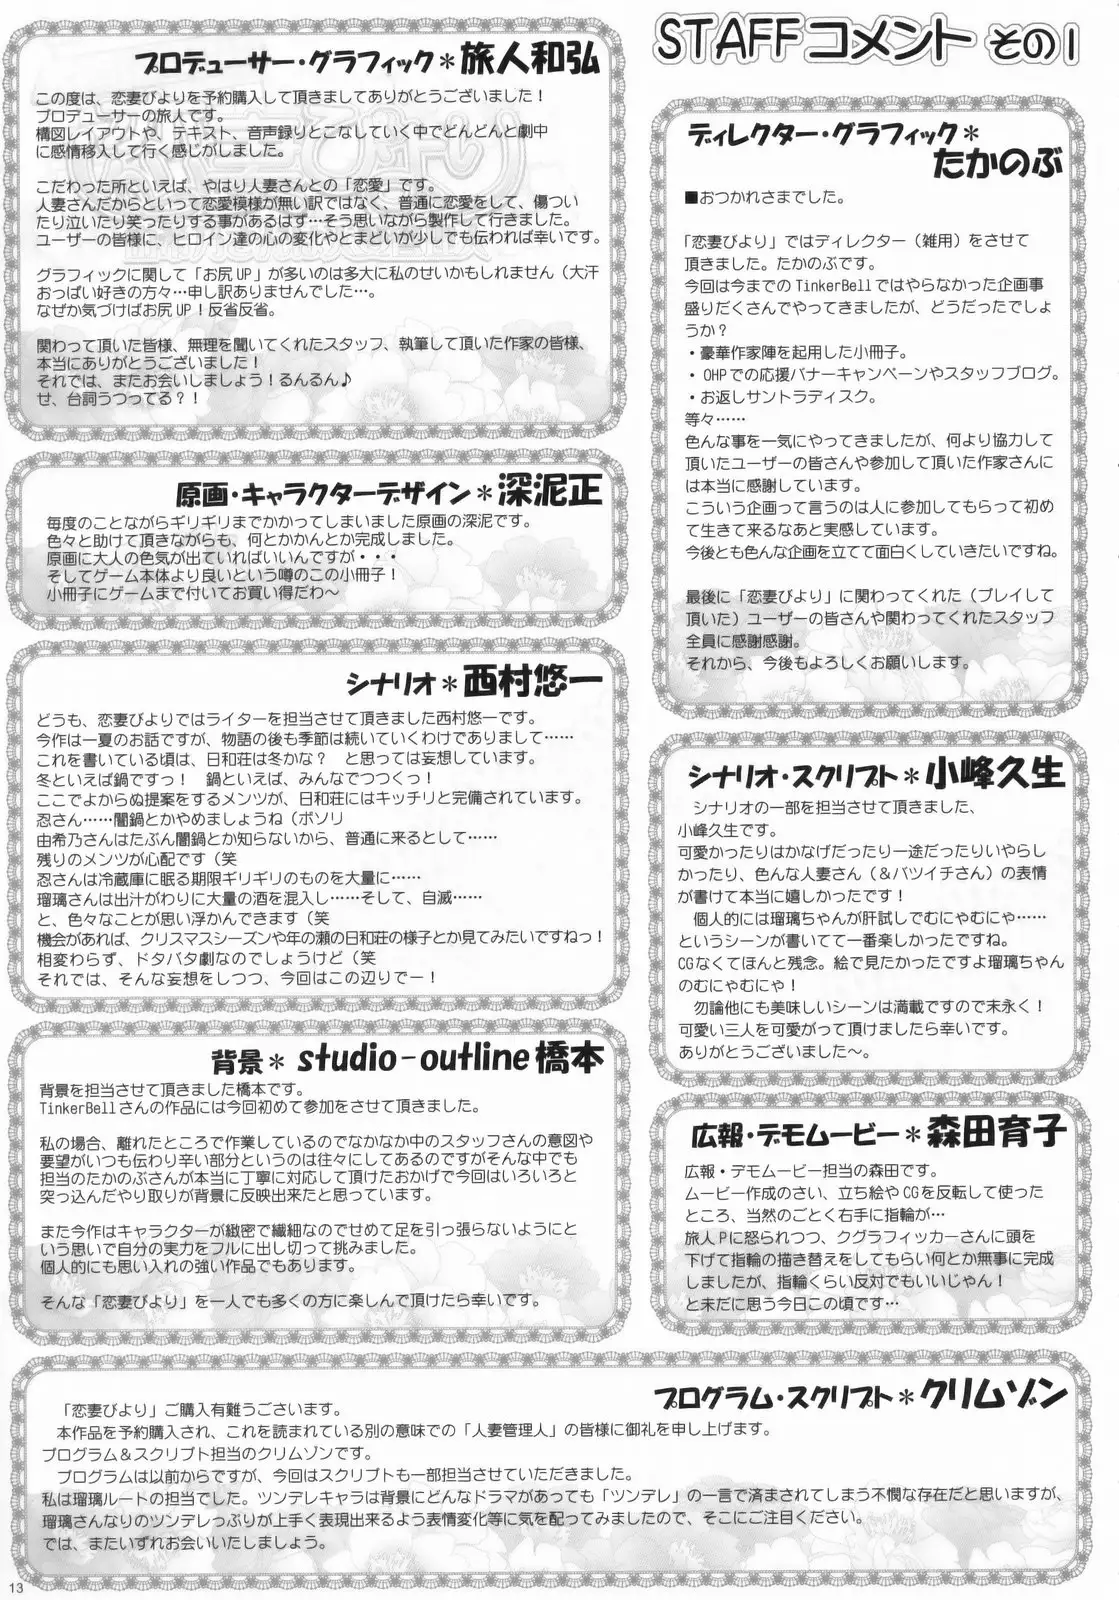 STAFFコメント その1
プロデューサー・グラフィック＊旅人和弘
この度は、恋妻びよりを予約購入して頂きましてありがとうございました！
プロデューサーの旅人です。
構図レイアウトや、テキスト、音声録りとこなしていく中でどんどんと劇中
に感情移入して行く感じがしました。
こだわった所といえば、やはり人妻さんとの「恋愛」です。
人妻さんだからといって恋愛模様が無い訳ではなく、普通に恋愛をして、傷つい
たり泣いたり笑ったりする事があるはず…そう思いながら製作して行きました。
ユーザーの皆様に、ヒロイン達の心の変化やとまどいが少しでも伝われば幸いです。
グラフィックに関して「お尻UP」が多いのは多大に私のせいかもしれません（大汗
おっぱい好きの方々…申し訳ありませんでした…。
なぜか気づけばお尻UP！反省反省。
関わって頂いた皆様、無理を聞いてくれたスタッフ、執筆して頂いた作家の皆様、
本当にありがとうございました！
それでは、またお会いしましょう！るんるん♪
せ、台詞うつってる？！
原画・キャラクターデザイン＊深泥正
毎度のことながらギリギリまでかかってしまいました原画の深泥です。
色々と助けて頂きながらも、何とかかんとか完成しました。
原画に大人の色気が出ていればいいんですが・・・
そしてゲーム本体より良いという噂のこの小冊子！
小冊子にゲームまで付いてお買い得だわ～
シナリオ＊西村悠一
どうも、恋妻びよりではライターを担当させて頂きました西村悠一です。
今作は一夏のお話ですが、物語の後も季節は続いていくわけでありまして……
これを書いている頃は、日和荘は冬かな？　と思っては妄想しています。
冬といえば鍋ですっ！　鍋といえば、みんなでつつくっ！
ここでよからぬ提案をするメンツが、日和荘にはキッチリと完備されています。
忍さん……闇鍋とかやめましょうね（ボソリ
由希乃さんはたぶん闇鍋とか知らないから、普通に来るとして……
残りのメンツが心配です（笑
忍さんは冷蔵庫に眠る期限ギリギリのものを大量に……
瑠璃さんは出汁がわりに大量の酒を混入し……そして、自滅……
と、色々なことが思い浮かんできます（笑
機会があれば、クリスマスシーズンや年の瀬の日和荘の様子とか見てみたいですねっ！
相変わらず、ドタバタ劇なのでしょうけど（笑
それでは、そんな妄想をしつつ、今回はこの辺りでー！
背景＊ studio-outline橋本
背景を担当させて頂きました橋本です。
TinkerBellさんの作品には今回初めて参加をさせて頂きました。
私の場合、離れたところで作業しているのでなかなか中のスタッフさんの意図や
要望がいつも伝わり辛い部分というのは往々にしてあるのですがそんな中でも
担当のたかのぶさんが本当に丁寧に対応して頂けたおかげで今回はいろいろと
突っ込んだやり取りが背景に反映出来たと思っています。
また今作はキャラクターが緻密で繊細なのでせめて足を引っ張らないようにと
いう思いで自分の実力をフルに出し切って挑みました。
個人的にも思い入れの強い作品でもあります。
そんな「恋妻びより」を一人でも多くの方に楽しんで頂けたら幸いです。
ディレクター・グラフィック＊
たかのぶ
■おつかれさまでした。
「恋妻びより」ではディレクター（雑用）をさせて
頂きました。たかのぶです。
今回は今までのTinkerBellではやらなかった企画事
盛りだくさんでやってきましたが、どうだったでしょ
うか？
・豪華作家陣を起用した小冊子。
・OHPでの応援バナーキャンペーンやスタッフブログ。
・お返しサントラディスク。
等々……
色んな事を一気にやってきましたが、何より協力して
頂いたユーザーの皆さんや参加して頂いた作家さんに
は本当に感謝しています。
こういう企画って言うのは人に参加してもらって初め
て生きて来るなあと実感しています。
今後とも色んな企画を立てて面白くしていきたいですね。
最後に「恋妻びより」に関わってくれた（プレイして
頂いた）ユーザーの皆さんや関わってくれたスタッフ
全員に感謝感謝。
それから、今後もよろしくお願いします。
シナリオ・スクリプト＊小峰久生
　シナリオの一部を担当させて頂きました、
小峰久生です。
可愛かったりはかなげだったり一途だったりいやらし
かったり、色んな人妻さん（＆バツイチさん）の表情
が書けて本当に嬉しかったです！
　個人的には瑠璃ちゃんが肝試しでむにゃむにゃ……
というシーンが書いてて一番楽しかったですね。
CGなくてほんと残念。絵で見たかったですよ瑠璃ちゃん
のむにゃむにゃ！
　勿論他にも美味しいシーンは満載ですので末永く！
可愛い三人を可愛がって頂けましたら幸いです。
ありがとうございました～。
広報・デモムービー＊森田育子
広報・デモムービー担当の森田です。
ムービー作成のさい、立ち絵やCGを反転して使った
ところ、当然のごとく右手に指輪が…
旅人Pに怒られつつ、クグラフィッカーさんに頭を
下げて指輪の描き替えをしてもらい何とか無事に完成
しましたが、指輪くらい反対でもいいじゃん！
と未だに思う今日この頃です…
プログラム・スクリプト＊クリムゾン
　「恋妻びより」ご購入有難うございます。
　本作品を予約購入され、これを読まれている別の意味での「人妻管理人」の皆様に御礼を申し上げます。
プログラム＆スクリプト担当のクリムゾンです。
　プログラムは以前からですが、今回はスクリプトも一部担当させていただきました。
私は瑠璃ルートの担当でした。ツンデレキャラは背景にどんなドラマがあっても「ツンデレ」の一言で済まされてしまう不憫な存在だと思いますが、
瑠璃さんなりのツンデレっぷりが上手く表現出来るよう表情変化等に気を配ってみましたので、そこにご注目ください。
では、またいずれお会いいたしましょう。
13